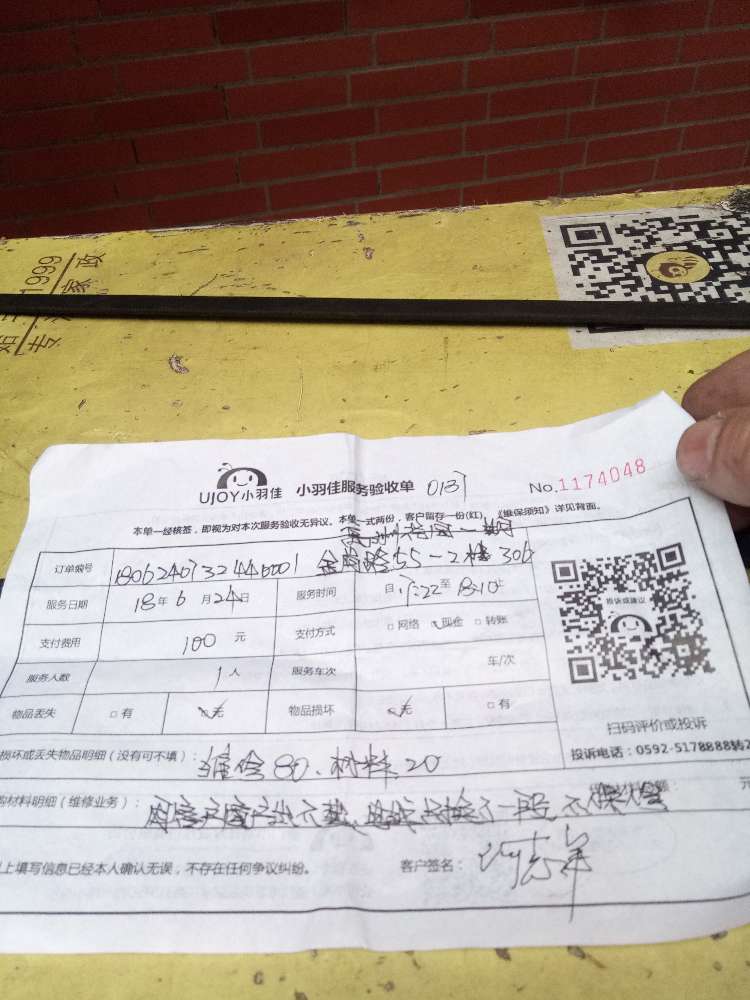 1999
家政
专
UJOY小羽佳 小羽佳服务验收单 0137 No.1174048
本单一经核签，即视为对本次服务验收无异议。本单一式两份，客户留存一份(红)，《维保须知》详见背面。
一期
订单编号 1806240732440001 55-2楼306
服务日期 18年6月24日 服务时间 自17:22至18:10止
支付费用 100元 支付方式 □网络 □现金 □转账
服务人数 1人 服务车次 车/次
物品丢失 □有 □无 物品损坏 □无 □有
投诉或建议
扫码评价或投诉
投诉电话：0592-5178888转2
损坏或丢失物品明细（没有可不填）： 维修80、材料20
购材料明细（维修业务）： 换了一段
元
上填写信息已经本人确认无误，不存在任何争议纠纷。 客户签名：